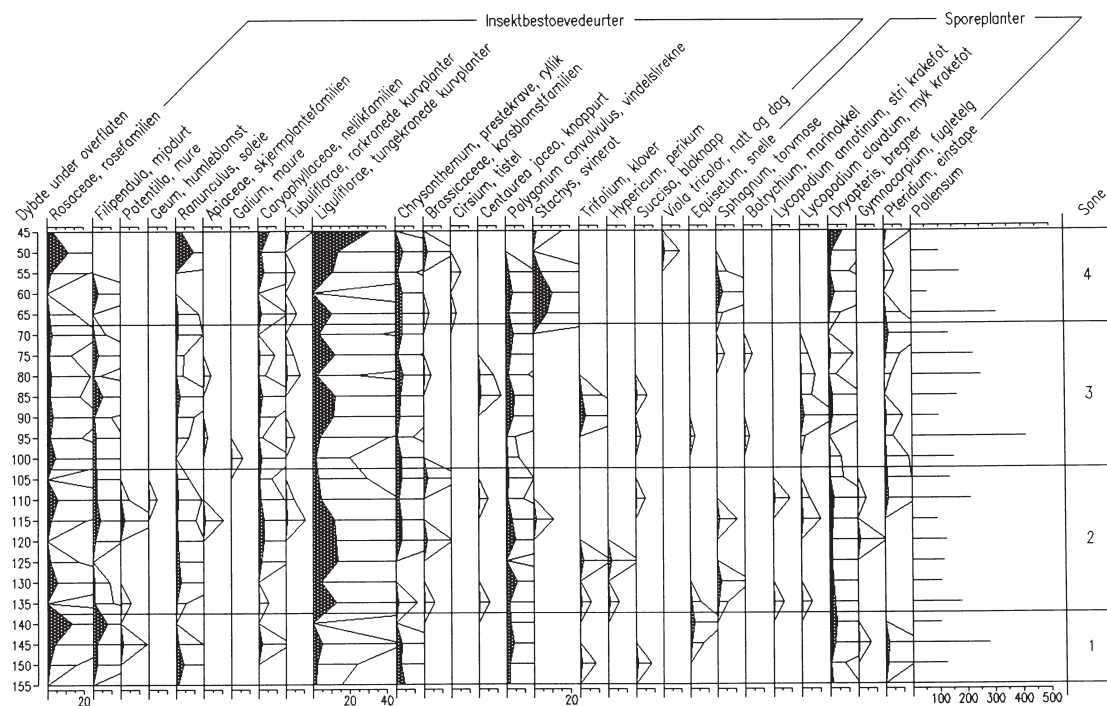 Insektbestoevedeurter
Sporeplanter
Dybde under overflaten
Rosaceae, rosefamilien
Filipendula, mjodurt
Potentilla, mure
Geum, humleblomst
Ranunculus, soleie
Apiaceae, skjermplantefamilien
Galium, maure
Caryophyllaceae, nellikfamilien
Tubuliflorae, rorkronede kurvplanter
Liguliflorae, tungekronede kurvplanter
Chrysanthemum, prestekrave, ryllik
Brassicaceae, korsblomstfamilien
Cirsium, tistel
Centaurea jacea, knoppurt
Polygonum convolvulus, vindelslirekne
Stachys, svinerot
Trifolium, klover
Hypericum, perikum
Succisa, blaknapp
Viola tricolor, natt og dag
Equisetum, snelle
Sphagnum, torvmose
Botrychium, marinokkel
Lycopodium annotinum, stri krakefot
Lycopodium clavatum, myk krakefot
Dryopteris, bregner
Gymnocarpium, fugletelg
Pteridium, einstape
Pollensum
Sone
45
50
55
60
65
70
75
80
85
90
95
100
105
110
115
120
125
130
135
140
145
150
155
4
3
2
1
20
20
40
20
100 200 300 400 500